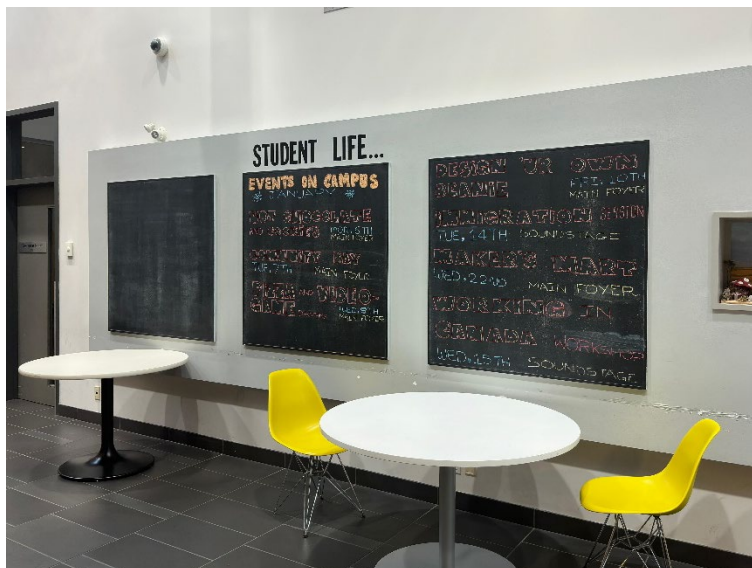 STUDENT LIFE...
EVENTS ON CAMPUS
* JANUARY *
HOT CHOCOLATE
AND COOKIES
MON, 6TH
MAIN FOYER
COMMUNITY DAY
TUE, 7TH MAIN FOYER
AND VIDEO-
GAME
WED, 8TH
MAIN FOYER
DESIGN UR OWN
BEANIE
FRI, 10TH
MAIN FOYER
IMMIGRATION SESSION
TUE, 14TH SOUNDSTAGE
MAKER'S MART
WED, 22ND MAIN FOYER
WORKING IN
CANADA WORKSHOP
WED, 15TH SOUNDSTAGE